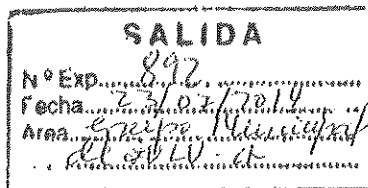 SALIDA
Nº Exp. 892
Fecha 23/07/2014
Area Grupo Municipal